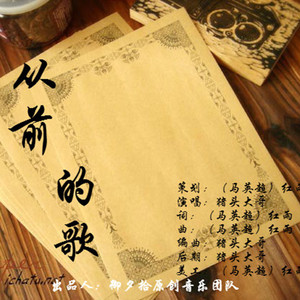 从前的歌
策划：（马英超）红
演唱：猪头大哥
词：（马英超）红雨
曲：（马英超）红雨
编曲：猪头大哥
后期：猪头大哥
美工：（马英超）红
jchatu.net
出品人：御夕拾原创音乐团队